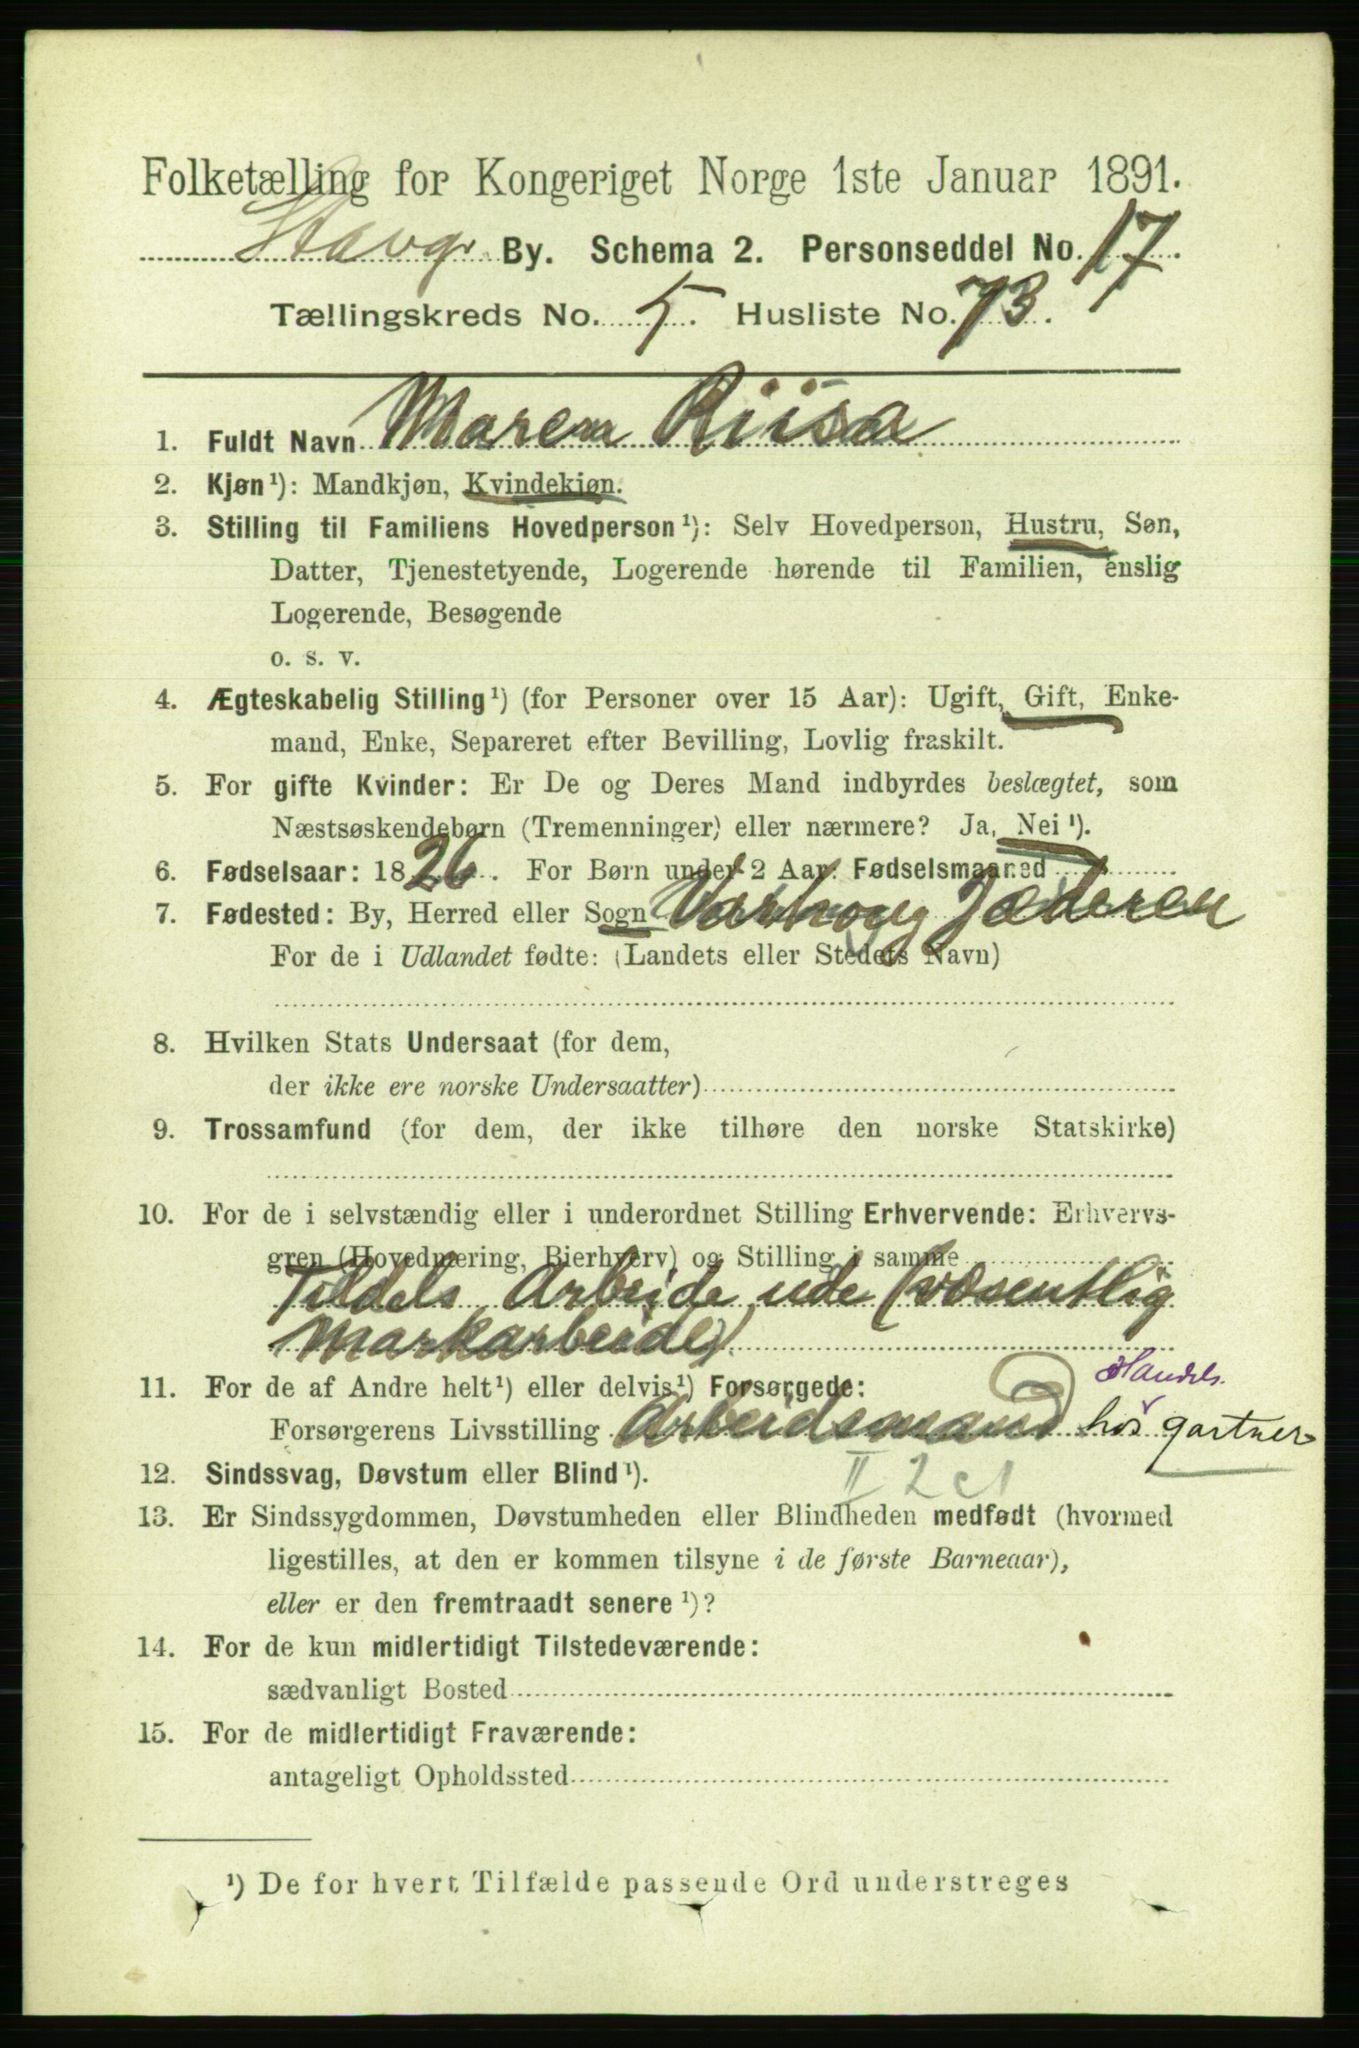 Folketælling for Kongeriget Norge 1ste Januar 1891.
Stavgr By. Schema 2. Personseddel No. 17.
Tællingskreds No. 5. Husliste No. 73.
1. Fuldt Navn Maren Riisa
2. Kjøn¹): Mandkjøn, Kvindekjøn.
3. Stilling til Familiens Hovedperson¹): Selv Hovedperson, Hustru, Søn,
Datter, Tjenestetyende, Logerende hørende til Familien, enslig
Logerende, Besøgende
o. s. v.
4. Ægteskabelig Stilling¹) (for Personer over 15 Aar): Ugift, Gift, Enke-
mand, Enke, Separeret efter Bevilling, Lovlig fraskilt.
5. For gifte Kvinder: Er De og Deres Mand indbyrdes beslægtet, som
Næstsøskendebørn (Tremenninger) eller nærmere? Ja, Nei¹).
6. Fødselsaar: 1826. For Børn under 2 Aar: Fødselsmaaned
7. Fødested: By, Herred eller Sogn Varhoug Jæderen
For de i Udlandet fødte: (Landets eller Stedets Navn)
8. Hvilken Stats Undersaat (for dem,
der ikke ere norske Undersaatter)
9. Trossamfund (for dem, der ikke tilhøre den norske Statskirke)
10. For de i selvstændig eller i underordnet Stilling Erhvervende: Erhvervs-
gren (Hovednæring, Bierhverv) og Stilling i samme
Tildels Arbeide ude (væsentlig
Markarbeide).
11. For de af Andre helt¹) eller delvis¹) Forsørgede:
Handels.
Forsørgerens Livsstilling Arbeidsmand hos gartner
II 2
12. Sindssvag, Døvstum eller Blind¹).
13. Er Sindssygdommen, Døvstumheden eller Blindheden medfødt (hvormed
ligestilles, at den er kommen tilsyne i de første Barneaar),
eller er den fremtraadt senere¹)?
14. For de kun midlertidigt Tilstedeværende:
sædvanligt Bosted
15. For de midlertidigt Fraværende:
antageligt Opholdssted
¹) De for hvert Tilfælde passende Ord understreges